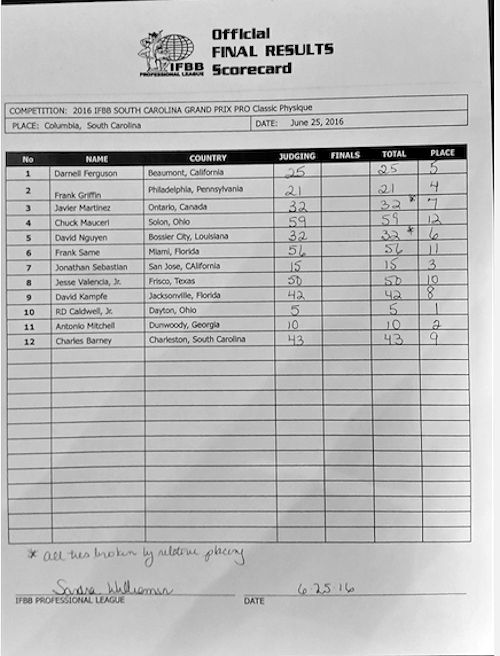 Official
FINAL RESULTS
Scorecard
IFBB
PROFESSIONAL LEAGUE
COMPETITION: 2016 IFBB SOUTH CAROLINA GRAND PRIX PRO Classic Physique
PLACE: Columbia, South Carolina DATE: June 25, 2016
No NAME COUNTRY JUDGING FINALS TOTAL PLACE
1 Darnell Ferguson Beaumont, California 25 25 5
2 Frank Griffin Philadelphia, Pennsylvania 21 21 4
3 Javier Martinez Ontario, Canada 32 32 * 7
4 Chuck Mauceri Solon, Ohio 59 59 12
5 David Nguyen Bossier City, Louisiana 32 32 * 6
6 Frank Same Miami, Florida 56 56 11
7 Jonathan Sebastian San Jose, CAlifornia 15 15 3
8 Jesse Valencia, Jr. Frisco, Texas 50 50 10
9 David Kampfe Jacksonville, Florida 42 42 8
10 RD Caldwell, Jr. Dayton, Ohio 5 5 1
11 Antonio Mitchell Dunwoody, Georgia 10 10 2
12 Charles Barney Charleston, South Carolina 43 43 9
* all ties broken by relative placing
Sandra Williamson 6-25-16
IFBB PROFESSIONAL LEAGUE DATE